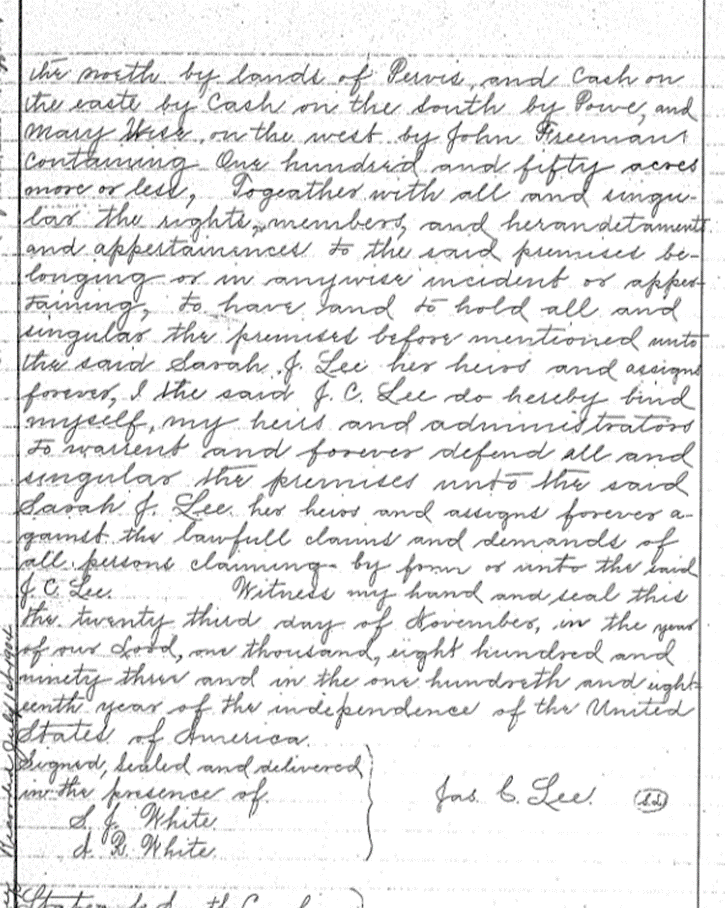 the north by lands of Pervis, and Cash on
the easte by Cash on the south by Powe, and
Mary Wise, on the west by John Freemans
Containing One hundred and fifty acres
more or less, Togeather with all and singu-
lar the rights, members, and herandetaments
and appertainences to the said premises be-
longing or in anywise incident or apper-
taining, to have and to hold all and
singular the premises before mentioned unto
the said Sarah J. Lee her heirs and assigns
forever, I the said J. C. Lee do hereby bind
myself, my heirs and administrators
to warrent and forever defend all and
singular the premises unto the said
Sarah J. Lee her heirs and assigns forever a-
gainst the lawfull claims and demands of
all persons claiming by form or unto the said
J. C. Lee. Witness my hand and seal this
the twenty third day of November, in the year
of our Lord, one thousand, eight hundred and
ninety three and in the one hundreth and eight-
eenth year of the independence of the United
States of America.
Signed, sealed and delivered
in the presence of
S. J. White
A. R. White
Jas. C. Lee.
Recorded July 1st 1904